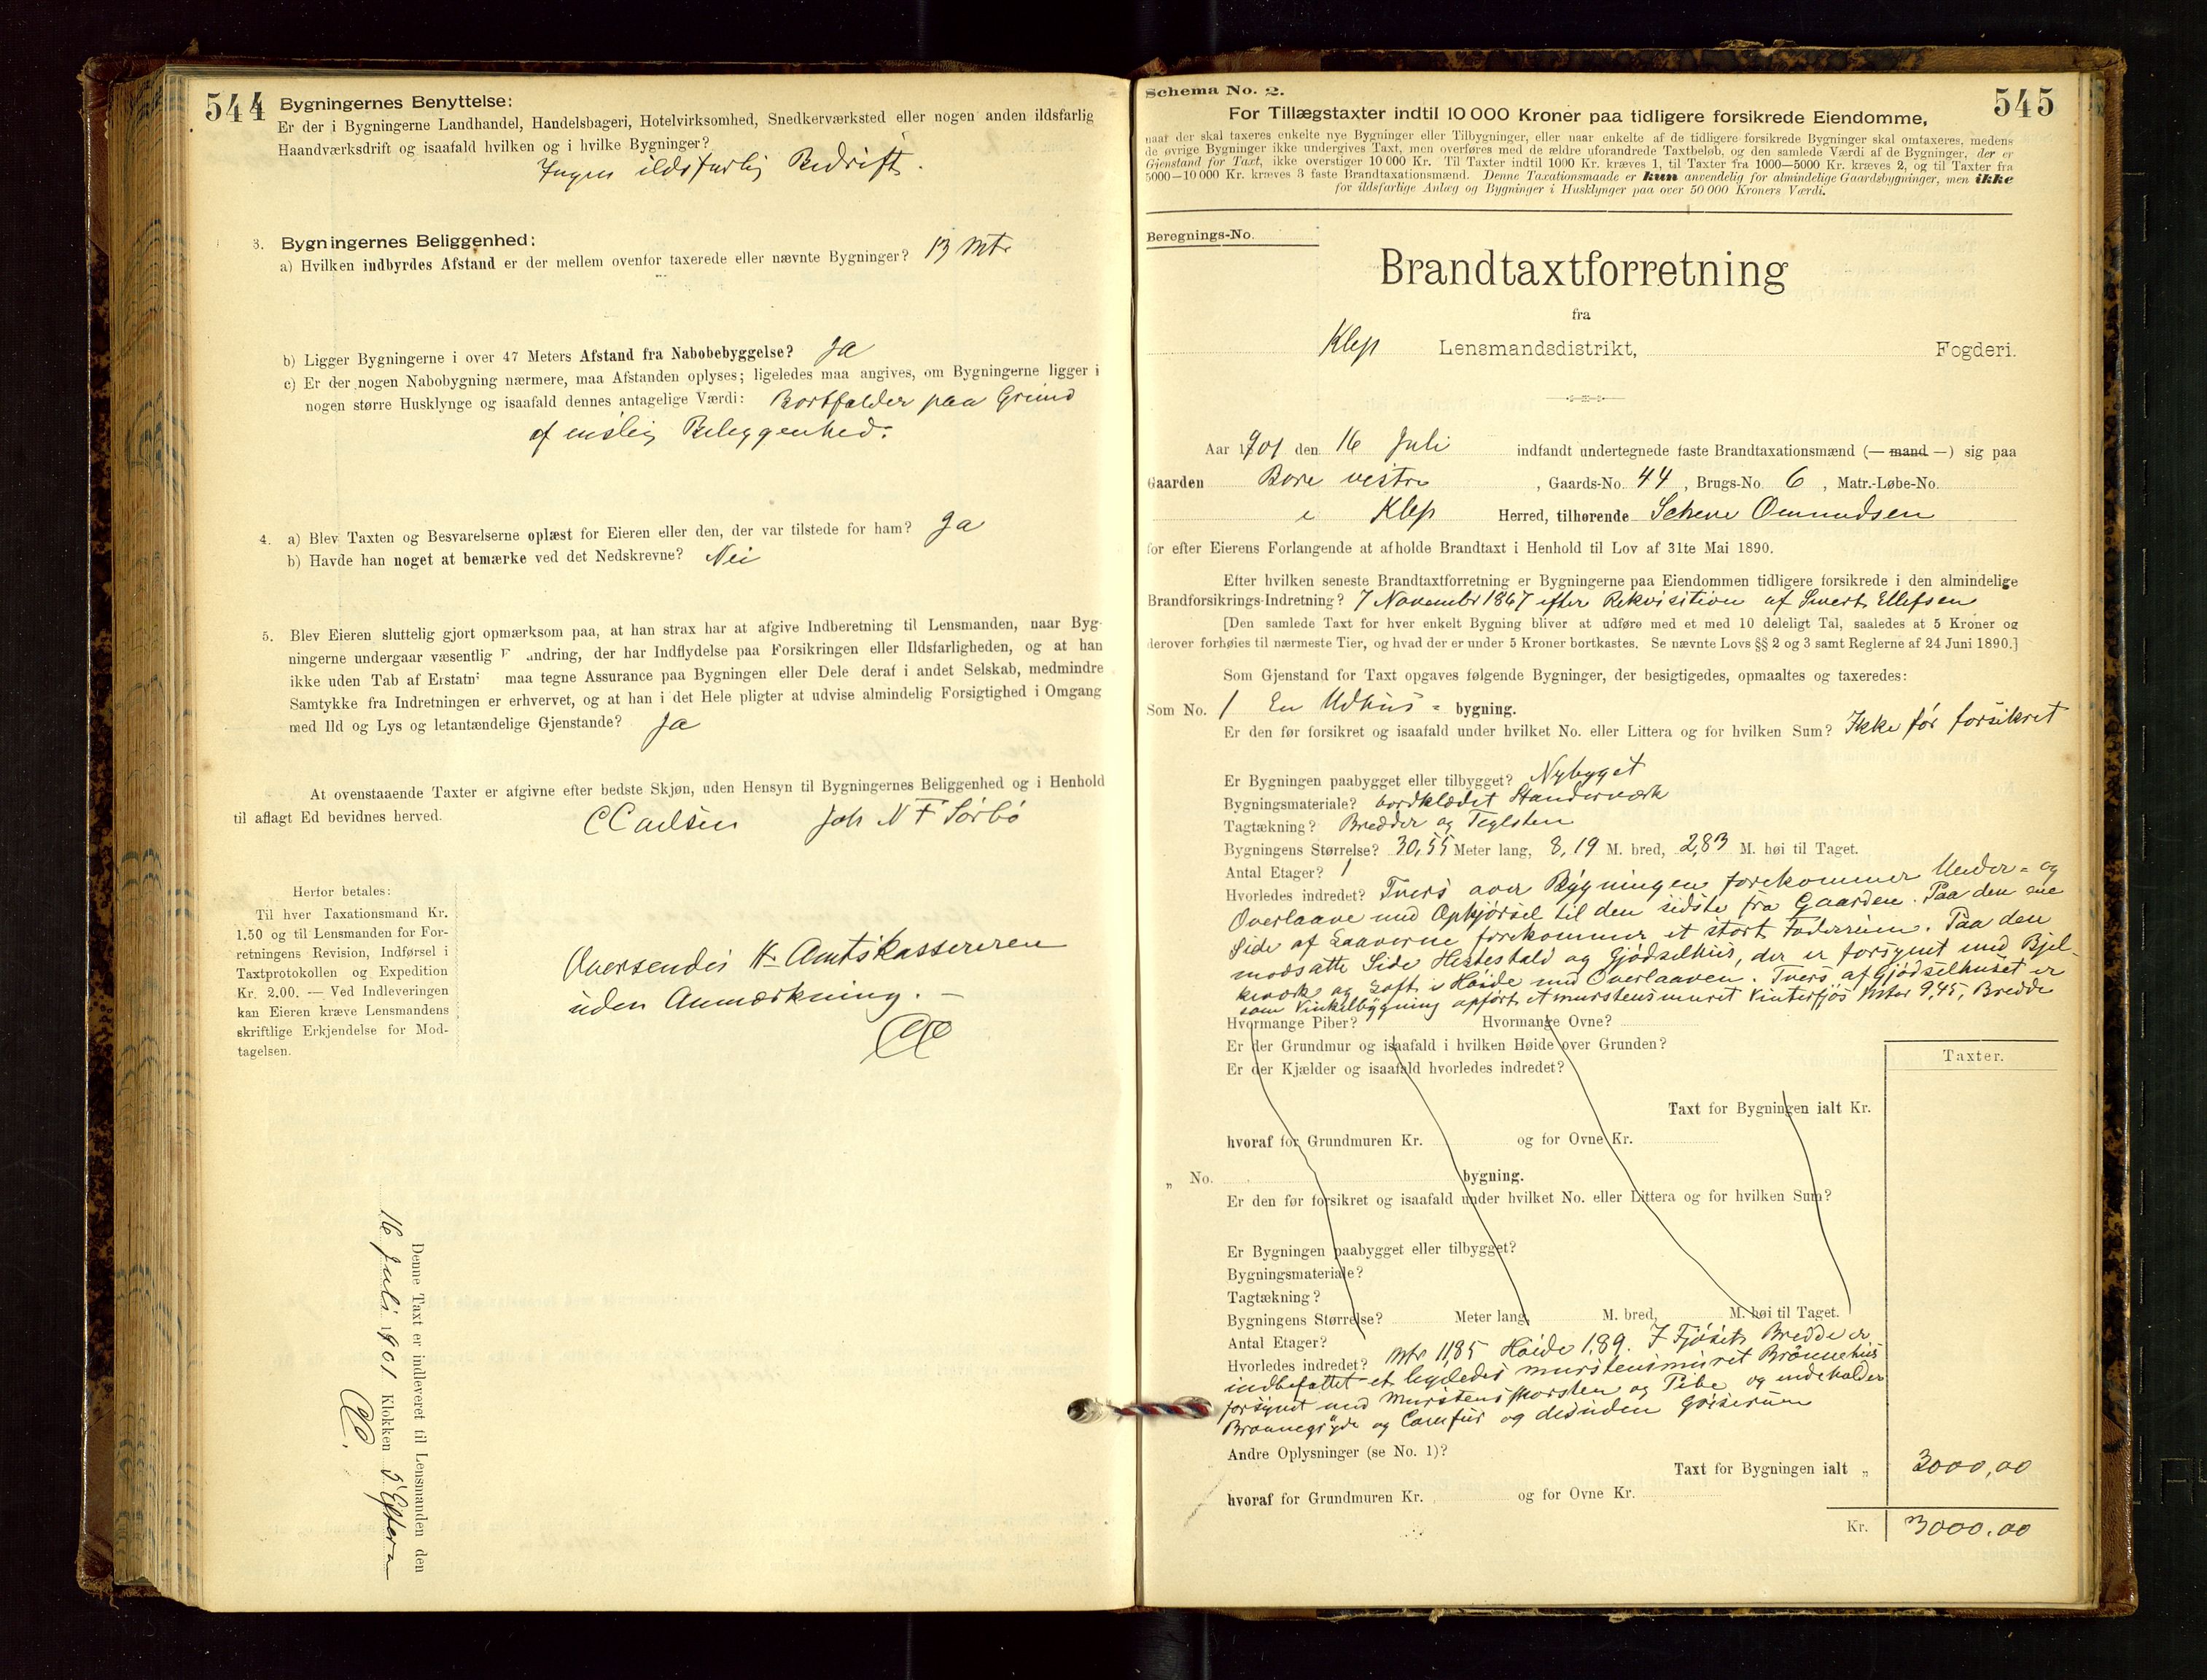 544
Bygningernes Benyttelse:
Er der i Bygningerne Landhandel, Handelsbageri, Hotelvirksomhed, Snedkerværksted eller nogen anden ildsfarlig
Haandværksdrift og isaafald hvilken og i hvilke Bygninger?
Ingen ildsfarlig Bedrift.
3. Bygningernes Beliggenhed:
a) Hvilken indbyrdes Afstand er der mellem ovenfor taxerede eller nævnte Bygninger? 13 Mtr
b) Ligger Bygningerne i over 47 Meters Afstand fra Nabobebyggelse? Ja
c) Er der nogen Nabobygning nærmere, maa Afstanden oplyses; ligeledes maa angives, om Bygningerne ligger i
nogen større Husklynge og isaafald dennes antagelige Værdi: Bortfalder paa Grund
af enslig Beliggenhed.
4. a) Blev Taxten og Besvarelserne oplæst for Eieren eller den, der var tilstede for ham? Ja
b) Havde han noget at bemærke ved det Nedskrevne? Nei
5. Blev Eieren sluttelig gjort opmærksom paa, at han strax har at afgive Indberetning til Lensmanden, naar Byg-
ningerne undergaar væsentlig F andring, der har Indflydelse paa Forsikringen eller Ildsfarligheden, og at han
ikke uden Tab af Erstatn maa tegne Assurance paa Bygningen eller Dele deraf i andet Selskab, medmindre
Samtykke fra Indretningen er erhvervet, og at han i det Hele pligter at udvise almindelig Forsigtighed i Omgang
med Ild og Lys og letantændelige Gjenstande? Ja
At ovenstaaende Taxter er afgivne efter bedste Skjøn, uden Hensyn til Bygningernes Beliggenhed og i Henhold
til aflagt Ed bevidnes herved.
C Carlsen Joh N F Sørbø
Herfor betales:
Til hver Taxationsmand Kr.
1.50 og til Lensmanden for For-
retningens Revision, Indførsel i
Taxtprotokollen og Expedition
Kr. 2.00. — Ved Indleveringen
kan Eieren kræve Lensmandens
skriftlige Erkjendelse for Mod-
tagelsen.
Oversendes Hr Amtskassereren
uden Anmærkning. —
Denne Taxt er indleveret til Lensmanden den
16 Juli 1901 Klokken 5 Efterm
545
Schema No. 2.
For Tillægstaxter indtil 10 000 Kroner paa tidligere forsikrede Eiendomme,
naar der skal taxeres enkelte nye Bygninger eller Tilbygninger, eller naar enkelte af de tidligere forsikrede Bygninger skal omtaxeres, medens
de øvrige Bygninger ikke undergives Taxt, men overføres med de ældre uforandrede Taxtbeløb, og den samlede Værdi af de Bygninger, der er
Gjenstand for Taxt, ikke overstiger 10 000 Kr. Til Taxter indtil 1000 Kr. kræves 1, til Taxter fra 1000—5000 Kr. kræves 2, og til Taxter fra
5000—10 000 Kr. kræves 3 faste Brandtaxationsmænd. Denne Taxationsmaade er kun anvendelig for almindelige Gaardsbygninger, men ikke
for ildsfarlige Anlæg og Bygninger i Husklynger paa over 50 000 Kroners Værdi.
Beregnings-No.
Brandtaxtforretning
fra
Klep Lensmandsdistrikt, Fogderi.
Aar 1901 den 16 Juli indfandt undertegnede faste Brandtaxationsmænd (— mand —) sig paa
Gaarden Bore vestre, Gaards-No. 44, Brugs-No. 6, Matr.-Løbe-No.
i Klep Herred, tilhørende Scheve Omundsen
for efter Eierens Forlangende at afholde Brandtaxt i Henhold til Lov af 31te Mai 1890.
Efter hvilken seneste Brandtaxtforretning er Bygningerne paa Eiendommen tidligere forsikrede i den almindelige
Brandforsikrings-Indretning? 7 November 1867 efter Rekvisition af Sivert Ellefsen
[Den samlede Taxt for hver enkelt Bygning bliver at udføre med et med 10 deleligt Tal, saaledes at 5 Kroner og
derover forhøies til nærmeste Tier, og hvad der er under 5 Kroner bortkastes. Se nævnte Lovs §§ 2 og 3 samt Reglerne af 24 Juni 1890.]
Som Gjenstand for Taxt opgaves følgende Bygninger, der besigtigedes, opmaaltes og taxeredes:
Som No. 1 En Udhus- bygning.
Er den før forsikret og isaafald under hvilket No. eller Littera og for hvilken Sum? Ikke før forsikret
Er Bygningen paabygget eller tilbygget? Nybyget
Bygningsmateriale? bordklædet Standerværk
Tagtækning? Bredder og Teglsten
Bygningens Størrelse? 30,55 Meter lang, 8,19 M. bred, 2,83 M. høi til Taget.
Antal Etager? 1
Hvorledes indredet? Tvers over Bygningen forekommer Under- og
Overlaave med Opkjørsel til den sidste fra Gaarden. Paa den ene
Side af Laaverne forekommer et stort Foderrum. Paa den
modsatte Side Hestestald og Gjødselhus, der er forsynet med Bjel-
keværk og Loft i Høide med Overlaaven. Tvers af Gjødselhuset er
som Vinkelbygning opført et murstensmuret Vinterfjøs Mtr 9,45, Bredde
Hvormange Piber? Hvormange Ovne?
Er der Grundmur og isaafald i hvilken Høide over Grunden?
Er der Kjælder og isaafald hvorledes indredet?
Taxter.
Taxt for Bygningen ialt Kr.
hvoraf for Grundmuren Kr. og for Ovne Kr.
„ No. bygning.
Er den før forsikret og isaafald under hvilket No. eller Littera og for hvilken Sum?
Er Bygningen paabygget eller tilbygget?
Bygningsmateriale?
Tagtækning?
Bygningens Størrelse? Meter lang, M. bred, M. høi til Taget.
Antal Etager?
Hvorledes indredet? Mtr 11,85 Høide 1,89. I Fjøsets Bredde er
indbefattet et ligeledes murstensmuret Brønnehus
forsynet med Murstensskorsten og Pibe og indeholder
Brønnegryde og Comfur og desuden Griserum
Andre Oplysninger (se No. 1)?
Taxt for Bygningen ialt „ 3000,00
hvoraf for Grundmuren Kr. og for Ovne Kr.
Kr. 3000.00